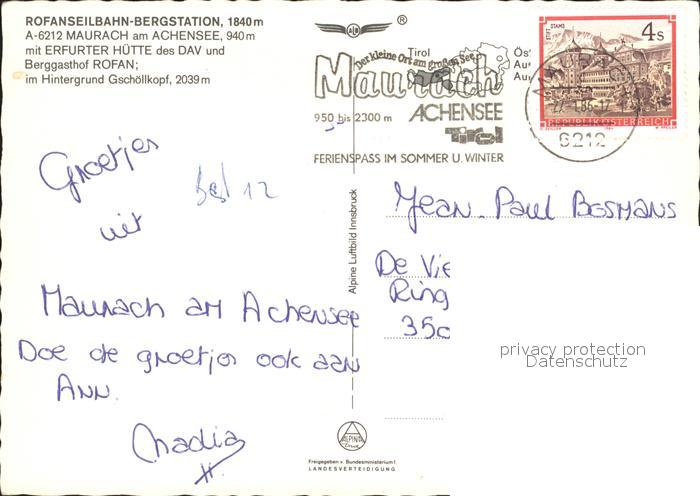 ROFANSEILBAHN-BERGSTATION, 1840 m
A-6212 MAURACH am ACHENSEE, 940 m
mit ERFURTER HÜTTE des DAV und
Berggasthof ROFAN;
im Hintergrund Gschöllkopf, 2039 m
®
Tirol
Der kleine Ort am großen See
Maurach
950 bis 2300 m
ACHENSEE
Tirol
FERIENSPASS IM SOMMER U. WINTER
STIFT STAMS
4 S
REPUBLIK ÖSTERREICH
6212
Groetjes
uit
Maurach am Achensee
Doe de groetjes ook aan
Ann.
Nadia
Alpine Luftbild Innsbruck
Jean-Paul Bosmans
De Vie
Ring
350
privacy protection
Datenschutz
ALPINA
Druck
Freigegeben v. Bundesministerium f.
LANDESVERTEIDIGUNG